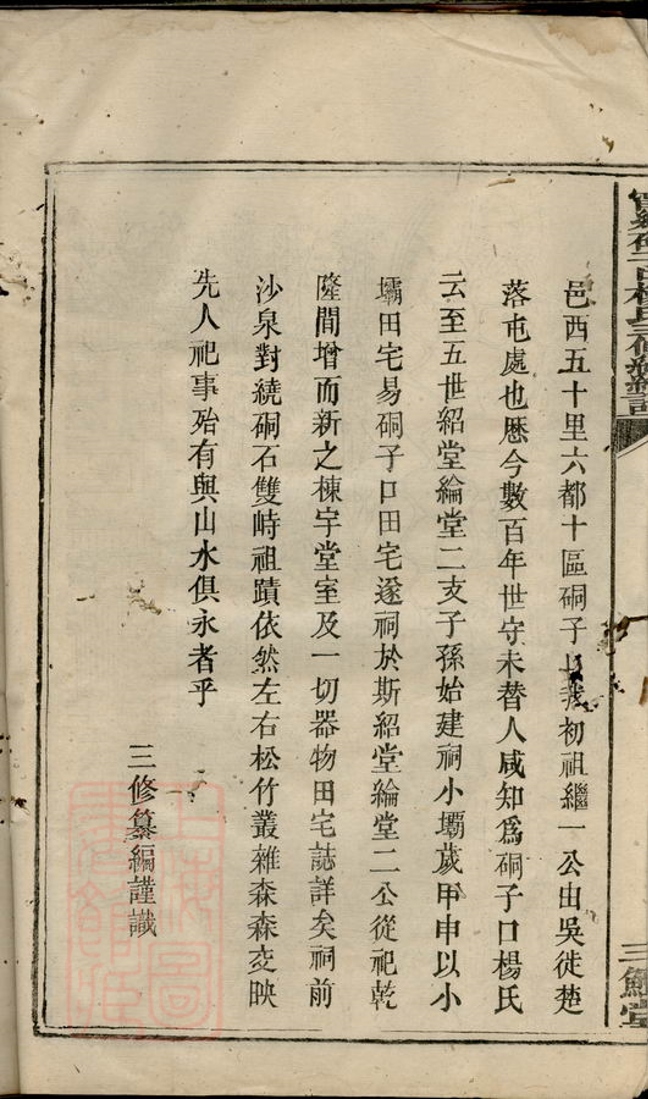 邑西五十里六都十區硐子口我初祖繼一公由吳徙楚
落屯處也歷今數百年世守未替人咸知爲硐子口楊氏
云至五世紹堂綸堂二支子孫始建祠小壩歲甲申以小
壩田宅易硐子口田宅遂祠於斯紹堂綸堂二公從祀乾
隆間增而新之棟宇堂室及一切器物田宅誌詳矣祠前
沙泉對繞硐石雙峙祖蹟依然左右松竹叢雜森森交映
先人祀事殆有與山水俱永者乎
三修纂編謹識
三鱣堂
上海圖書館藏